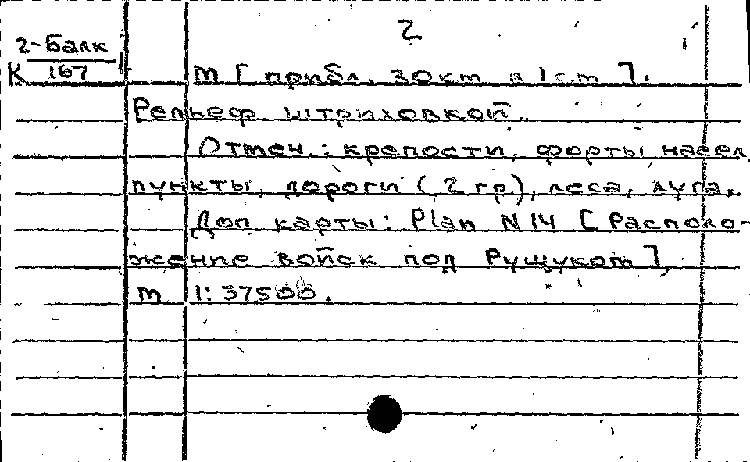 2
2-Балк
К 167
М [ прибл. 30км в 1см ].
Рельеф штриховкой.
Отмеч.: крепости, форты, насел.
пункты, дороги (2 гр), леса, луга.
Доп карты: Plan N 14 [ Располо-
жение войск под Рущуком ],
м 1:37500.